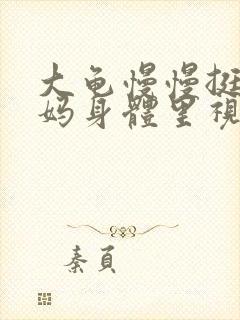 大龟慢慢挺
妈身體里视
秦頁